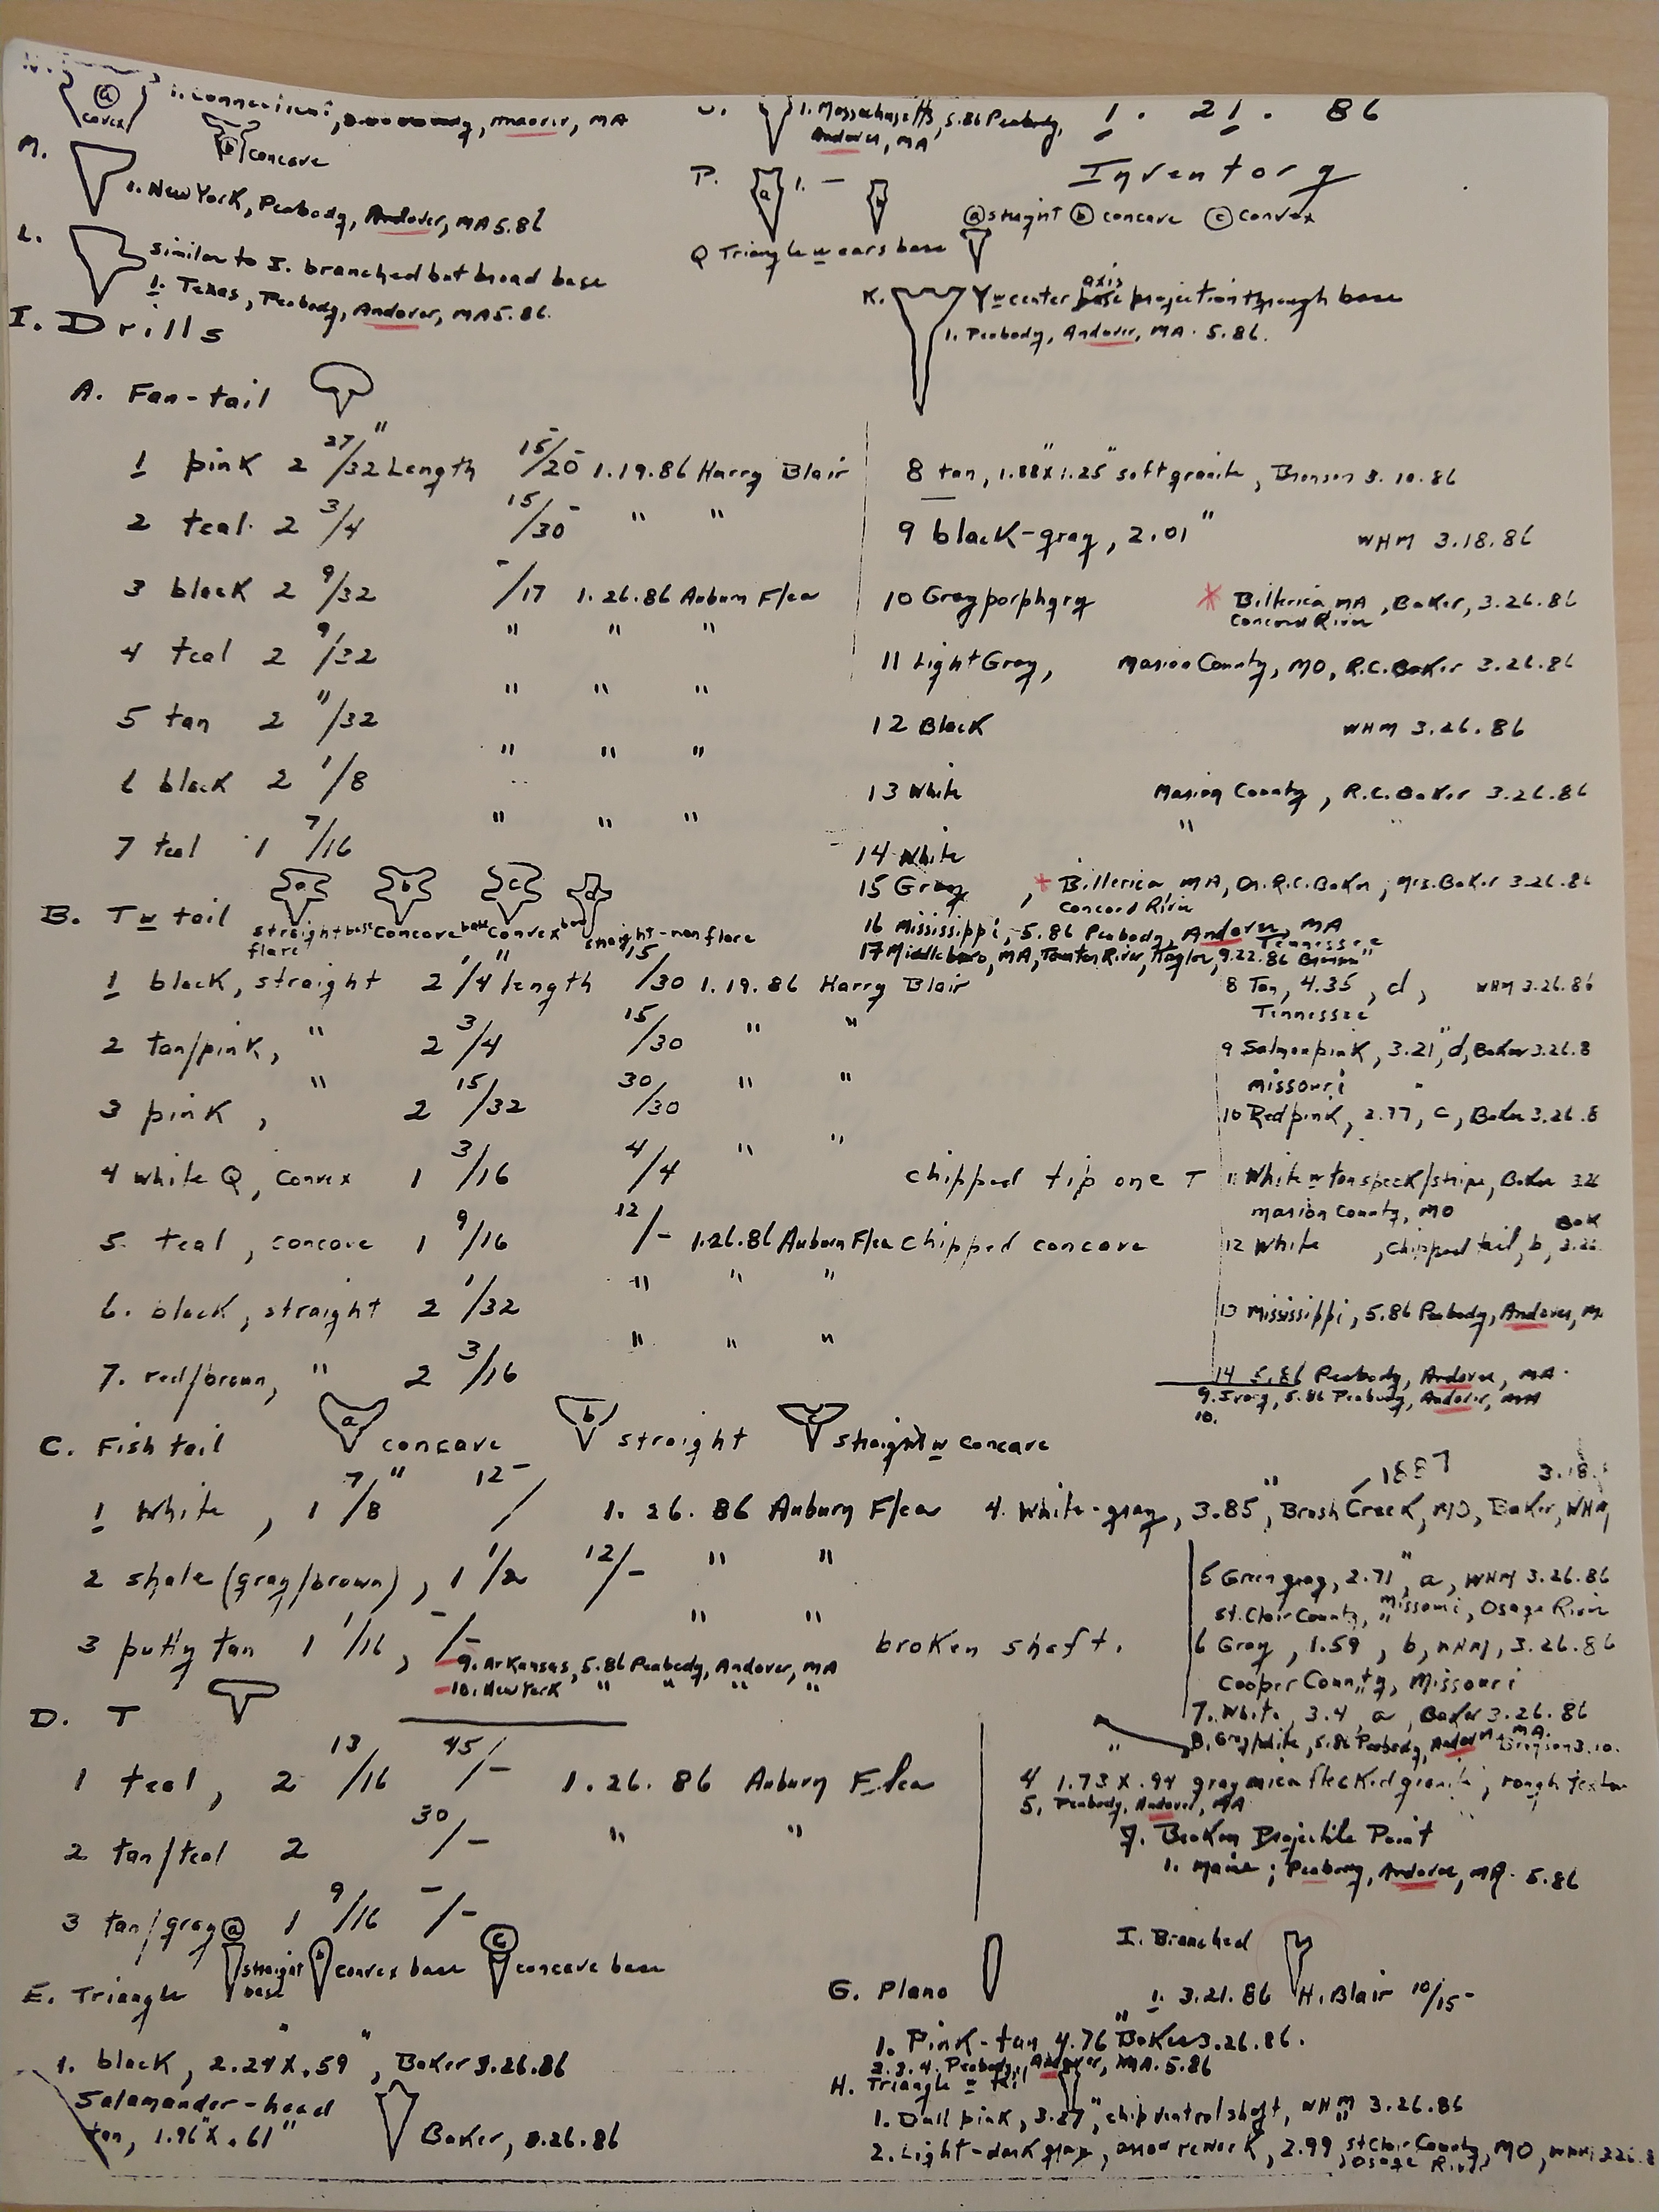 N. ⓐ convex 1. Connecticut, Andover, MA
ⓑ concave
O. 1. Massachusetts, 5.86 Peabody,
Andover, MA
1. 21. 86
M. 1. New York, Peabody, Andover, MA 5.86
P. a 1. — b
Inventory
ⓐ straight ⓑ concave ⓒ convex
Q Triangle w ears base
L. similar to I. branched but broad base
1. Texas, Peabody, Andover, MA 5.86.
K. Y w center axis projection through base
1. Peabody, Andover, MA. 5.86.
I. Drills
A. Fan-tail
1 pink 2 27/32" Length 15/20 1.19.86 Harry Blair
2 teal. 2 3/4 15/30 " "
3 black 2 9/32 -/17 1.26.86 Auburn Flea
4 teal 2 9/32 " " "
5 tan 2 11/32 " " "
6 black 2 1/8 " " "
7 teal 1 7/16 " " "
8 tan, 1.88" x 1.25" soft granite, Bronson 3.10.86
9 black-gray, 2.01" WHM 3.18.86
10 Gray porphyry * Billerica, MA, Baker, 3.26.86
Concord River
11 Light Gray, Marion County, MO, R.C. Baker 3.26.86
12 Black WHM 3.26.86
13 White Marion County, R.C. Baker 3.26.86
14 White " "
15 Gray, * Billerica, MA, Dr. R.C. Baker, Mrs. Baker 3.26.86
Concord River
16 Mississippi, 5.86 Peabody, Andover, MA
17 Middleboro, MA, Taunton River, Taylor, 9.22.86
B. T w tail
a straight base flare
b concave base
c convex base
d straight-non flare
1 black, straight 2 1/4" length 15/30 1.19.86 Harry Blair
2 tan/pink, " 2 3/4 15/30 " "
3 pink, " 2 15/32 30/30 " "
4 white Q, convex 1 3/16 4/4 " " chipped tip one T
5. teal, concave 1 9/16 12/- 1.26.86 Auburn Flea chipped concave
6. black, straight 2 1/32 " " "
7. red/brown, " 2 3/16 " " "
Tennessee
8 Tan, 4.35", d, WHM 3.26.86
Tennessee
9 Salmon pink, 3.21", d, Baker 3.26.8
Missouri
10 Red pink, 2.77, c, Baker 3.26.8
11 White w tan speck/stripe, Baker 3.26
Marion County, MO
12 White, chipped tail, b, Bak 3.26.
13 Mississippi, 5.86 Peabody, Andover, M
14 5.86 Peabody, Andover, MA.
9. Ivory, 5.86 Peabody, Andover, MA
10.
C. Fish tail a concave b straight c straight w concave
1 White, 1 7/8" 12-/ 1. 26. 86 Auburn Flea
2 shale (gray/brown), 1 1/2 12/- " "
3 putty tan 1 1/16, -/- " " broken shaft.
9. Arkansas, 5.86 Peabody, Andover, MA
10. New York " " " "
4. White-gray, 3.85", Brush Creek, MO, Baker, WHM 1887 3.18.
5 Green gray, 2.71", a, WHM 3.26.86
St. Clair County, Missouri, Osage River
6 Gray, 1.59", b, WHM, 3.26.86
Cooper County, Missouri
7. White, 3.4", a, Baker 3.26.86
8. Gray/white, 5.86 Peabody, Andover, MA.
D. T
1 teal, 2 13/16 45/- 1. 26. 86 Auburn Flea
2 tan/teal 2 30/- " "
3 tan/gray 1 9/16 -/-
4 1.73" x .94 gray mica flecked granite, rough texture Bronson 3.10.
5. Peabody, Andover, MA
J. Broken Projectile Point
1. Maine; Peabody, Andover, MA. 5.86
E. Triangle ⓐ straight base b convex base ⓒ concave base
1. black, 2.24" x .59", Baker 3.26.86
Salamander-head
tan, 1.96" x .61" Baker, 3.26.86
I. Branched
1. 3.21.86 H. Blair 10/15-
G. Plano
1. Pink-tan 4.76" Baker 3.26.86.
2. 3. 4. Peabody, Andover, MA. 5.86
H. Triangle w tail
1. Dull pink, 3.27", chip ventral shaft, WHM 3.26.86
2. Light-dark gray, arrow rework, 2.99", St Clair County, MO, WHM 3.26.8
Osage River